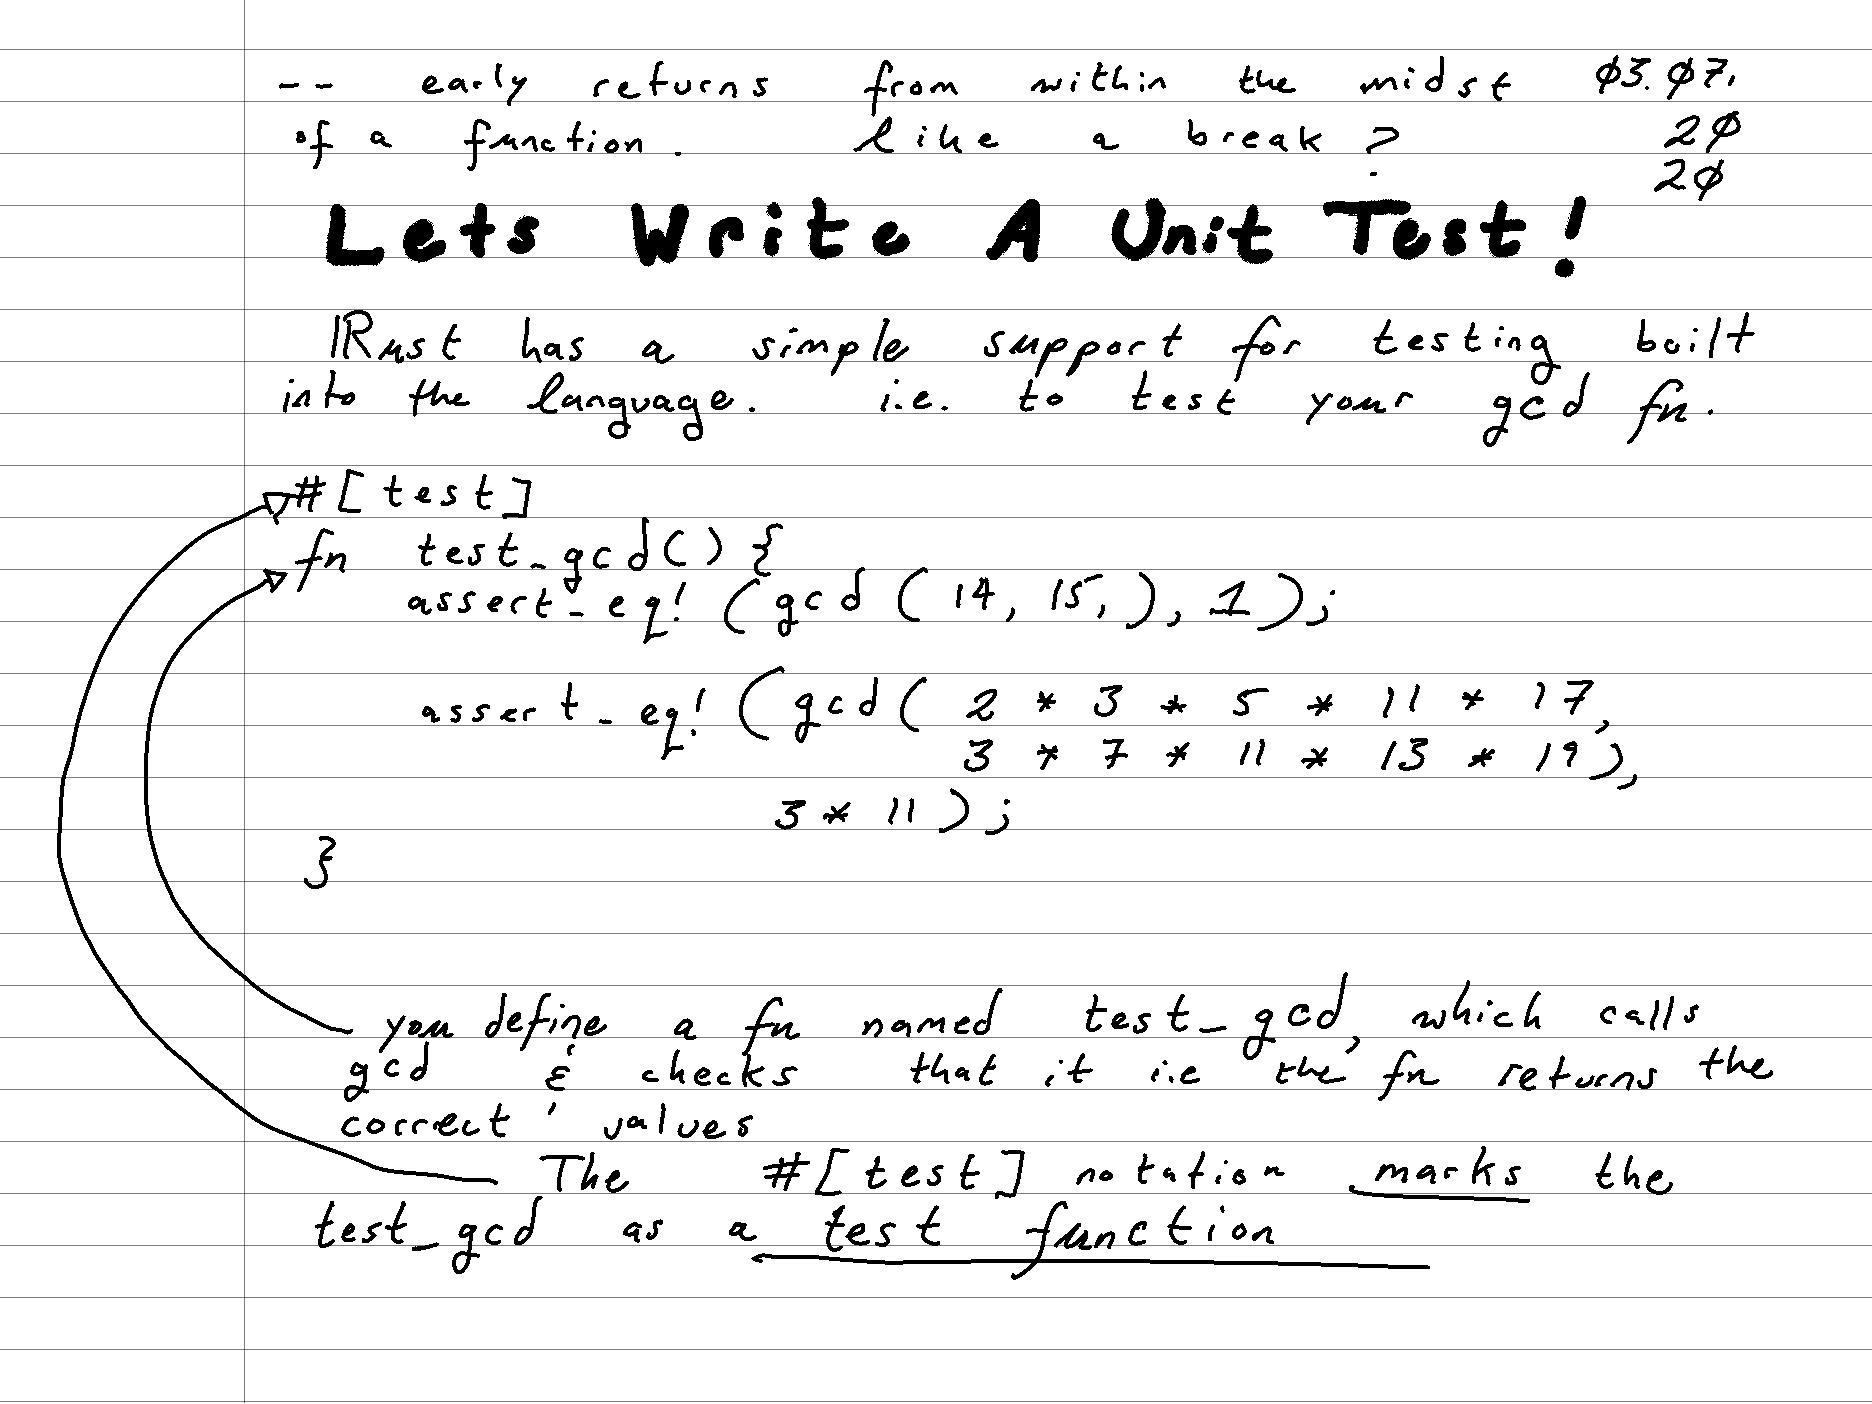 -- early returns from within the midst ø3.ø7.
of a function. like a break? 2ø
2ø
Lets Write A Unit Test!
Rust has a simple support for testing built
into the language. i.e. to test your gcd fn.
#[test]
fn test_gcd() {
assert_eq! (gcd (14, 15,), 1);
assert_eq! (gcd( 2 * 3 * 5 * 11 * 17,
3 * 7 * 11 * 13 * 19),
3 * 11);
}
you define a fn named test_gcd, which calls
gcd & checks that it i.e the fn returns the
correct values
The #[test] notation marks the
test_gcd as a test function